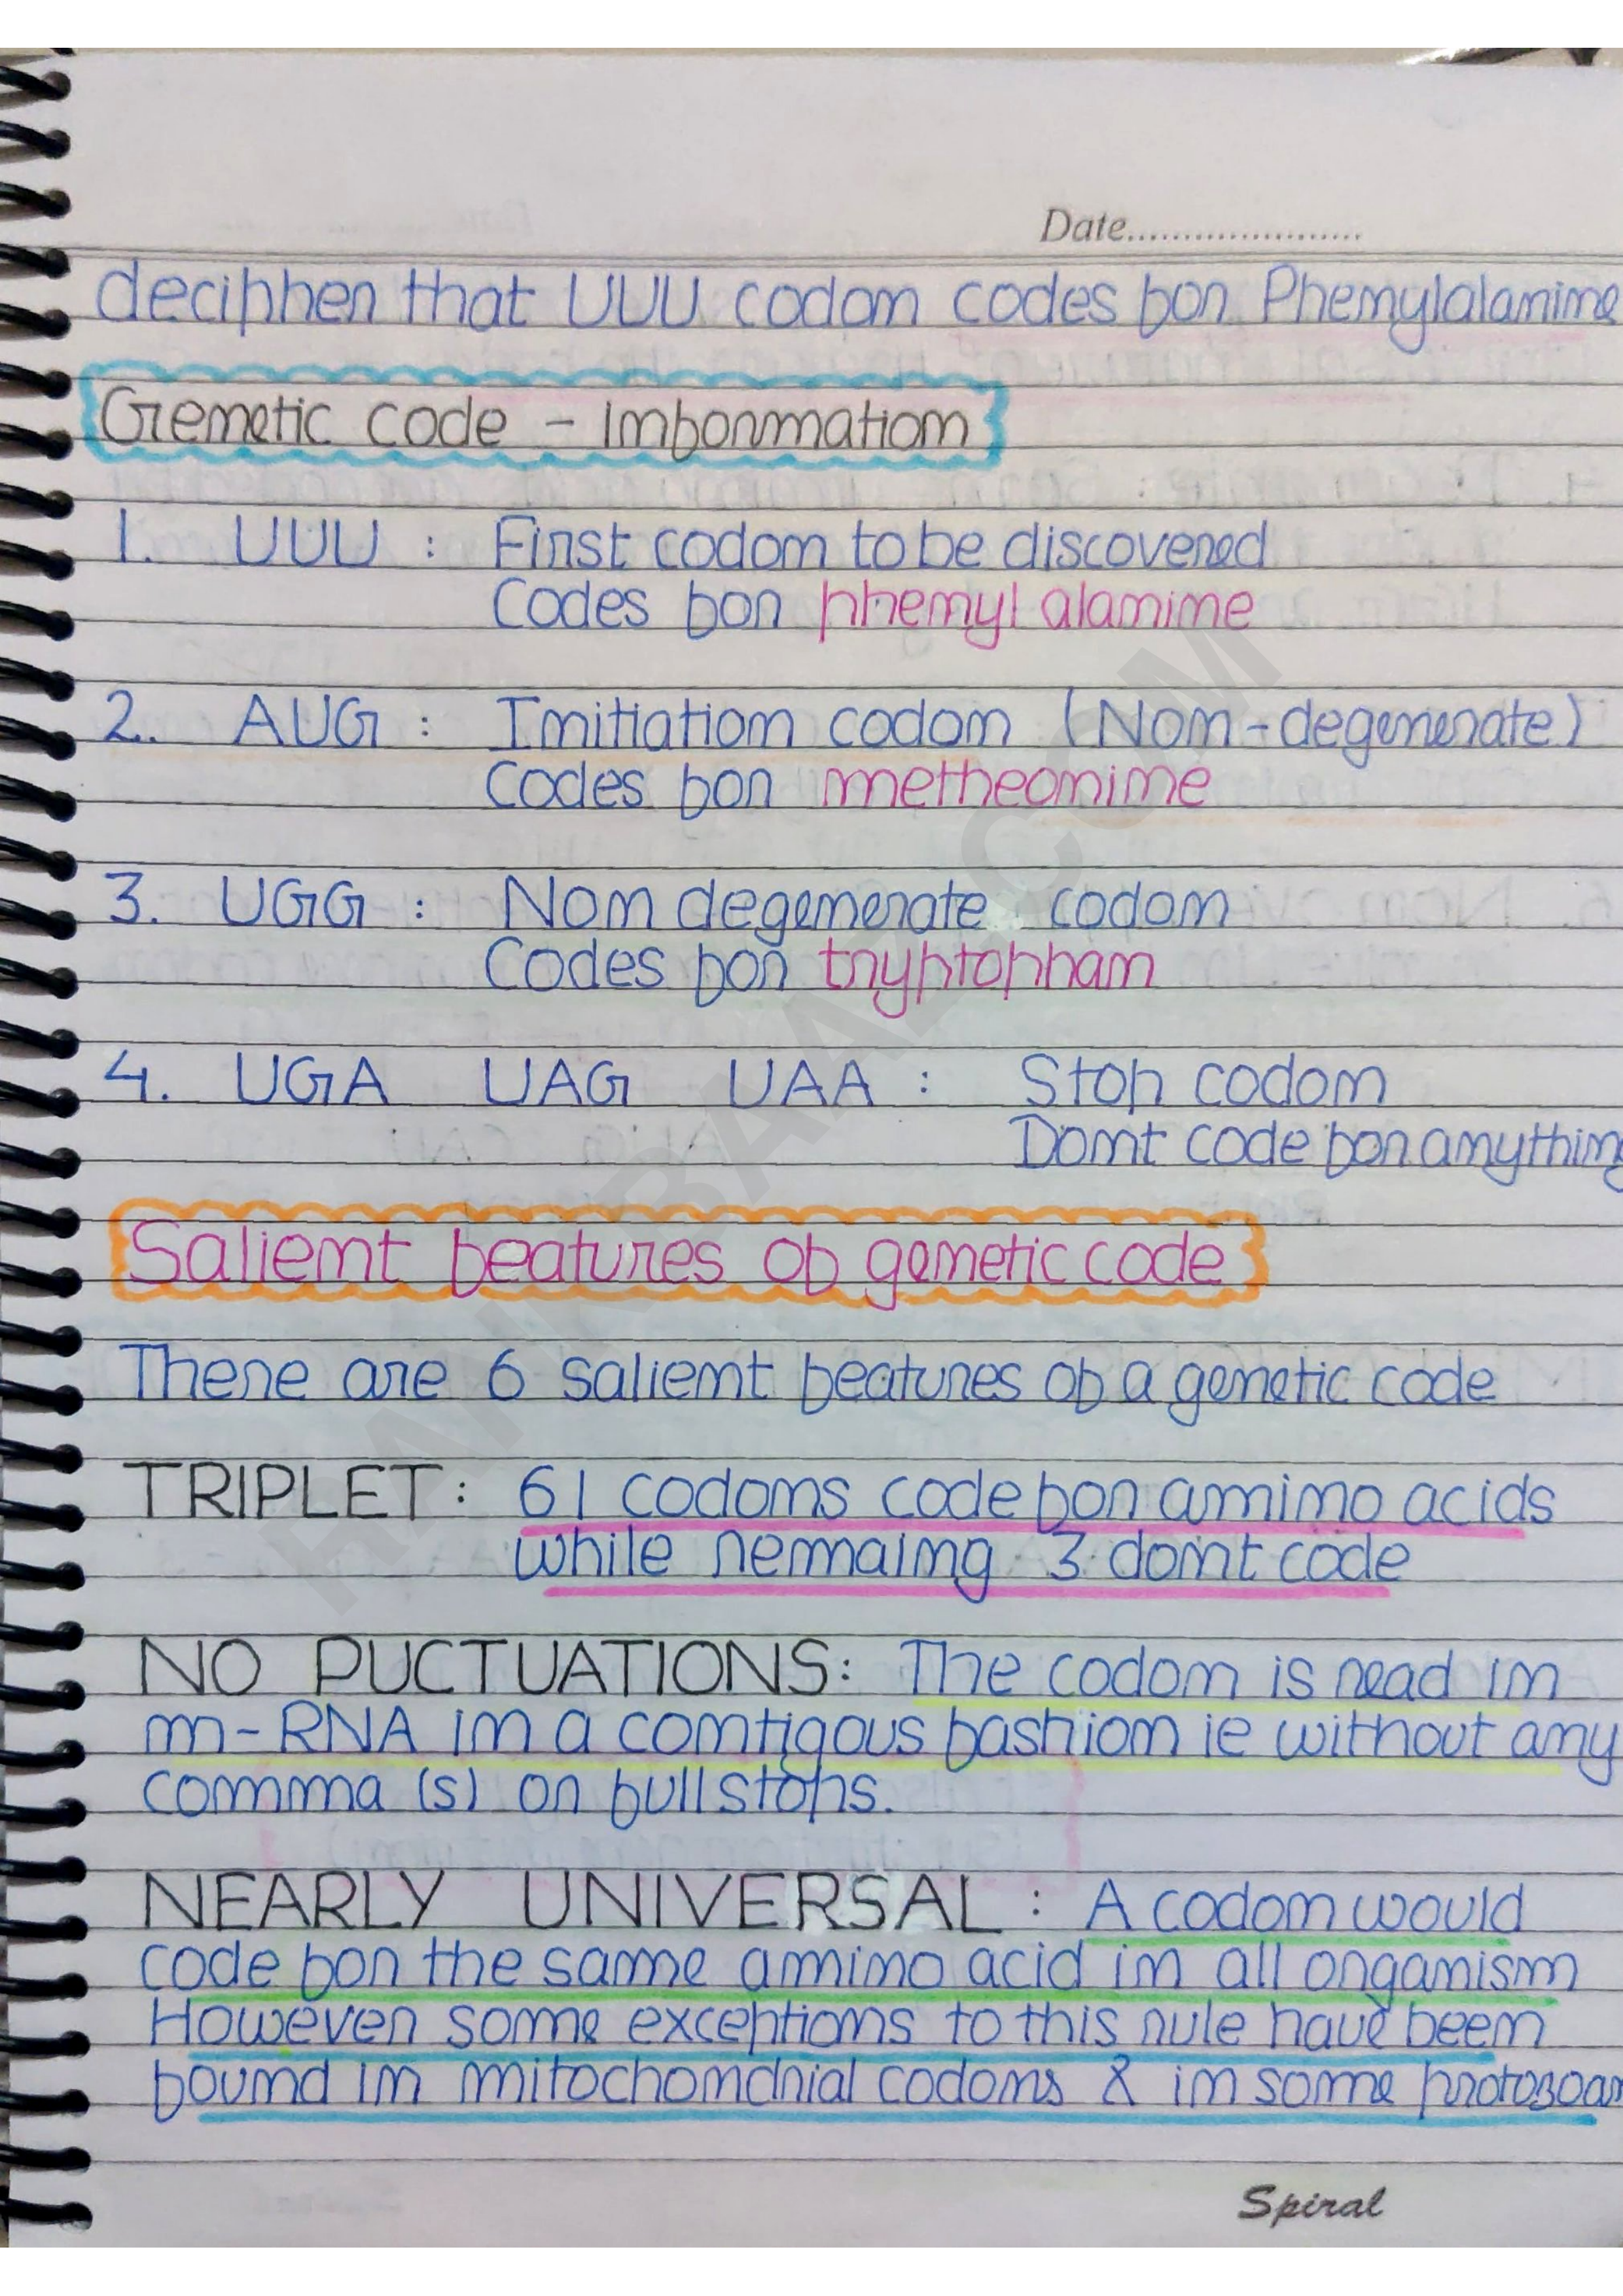 Date.....................
decipher that UUU codon codes for Phenylalanine
Genetic code - Information
1. UUU : First codon to be discovered
Codes for phenyl alanine
2. AUG : Initiation codon (Non-degenerate)
Codes for metheonine
3. UGG : Non degenerate codon
Codes for tryptophan
4. UGA UAG UAA : Stop codon
Dont code for anything
Salient features of genetic code
There are 6 salient features of a genetic code
TRIPLET: 61 codons code for amino acids
while remaing 3 dont code
NO PUCTUATIONS: The codon is read in
m-RNA in a contigous fashion ie without any
comma (s) or full stops.
NEARLY UNIVERSAL : A codon would
code for the same amino acid in all organism
However some exceptions to this rule have been
found in mitochondrial codons & in some protozoan
Spiral